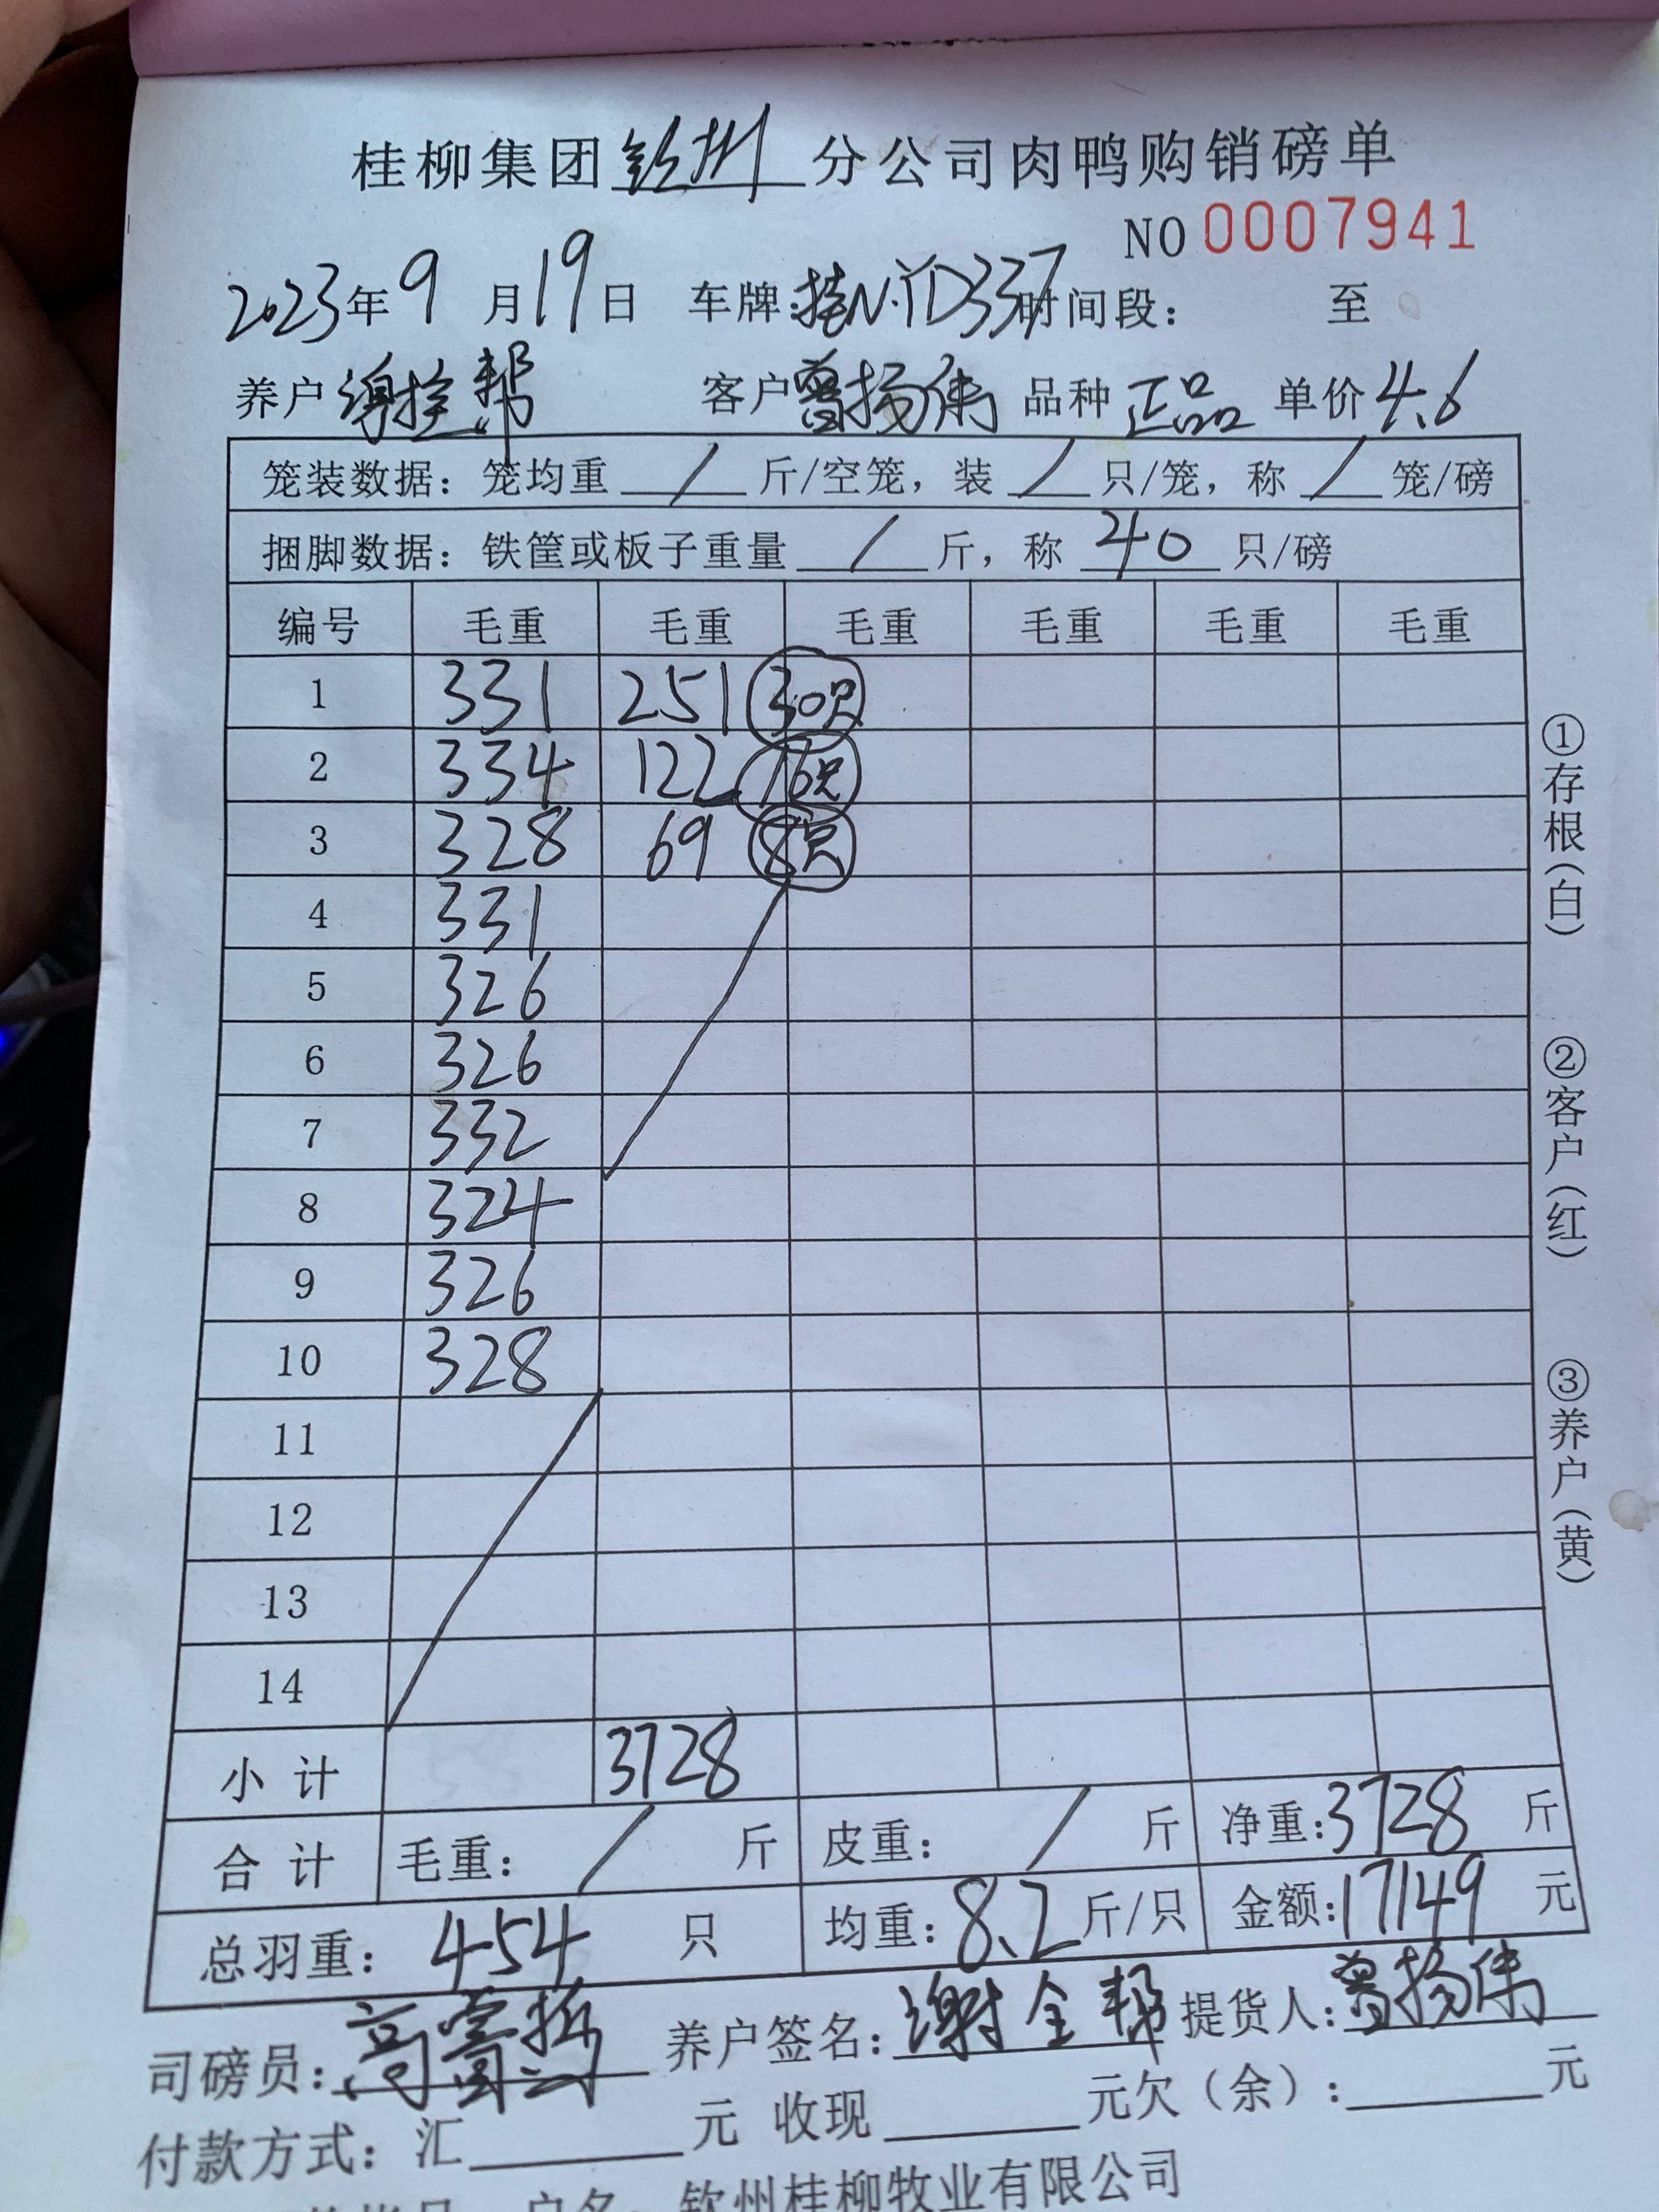 桂柳集团钦州分公司肉鸭购销磅单
NO 0007941
2023年9月19日 车牌:桂N·YD337时间段: 至
养户 谢全帮 客户 曾扬伟 品种 正品 单价 4.6
笼装数据: 笼均重 / 斤/空笼, 装 / 只/笼, 称 / 笼/磅
捆脚数据: 铁筐或板子重量 / 斤, 称 40 只/磅
编号 毛重 毛重 毛重 毛重 毛重 毛重
1 331 251 30只
2 334 122 16只
3 328 69 8只
4 331
5 326
6 326
7 332
8 324
9 326
10 328
11
12
13
14
小计 3728
合计 毛重: / 斤 皮重: / 斤 净重:3728 斤
总羽重: 454 只 均重: 8.2 斤/只 金额:17149 元
司磅员: 养户签名: 谢全帮 提货人:曾扬伟
付款方式: 汇 元 收现 元欠(余): 元
户名: 钦州桂柳牧业有限公司
①存根(白)
②客户(红)
③养户(黄)